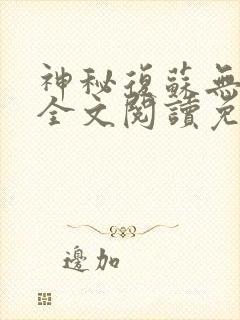 神秘復蘇無
全文閱讀免
邊加